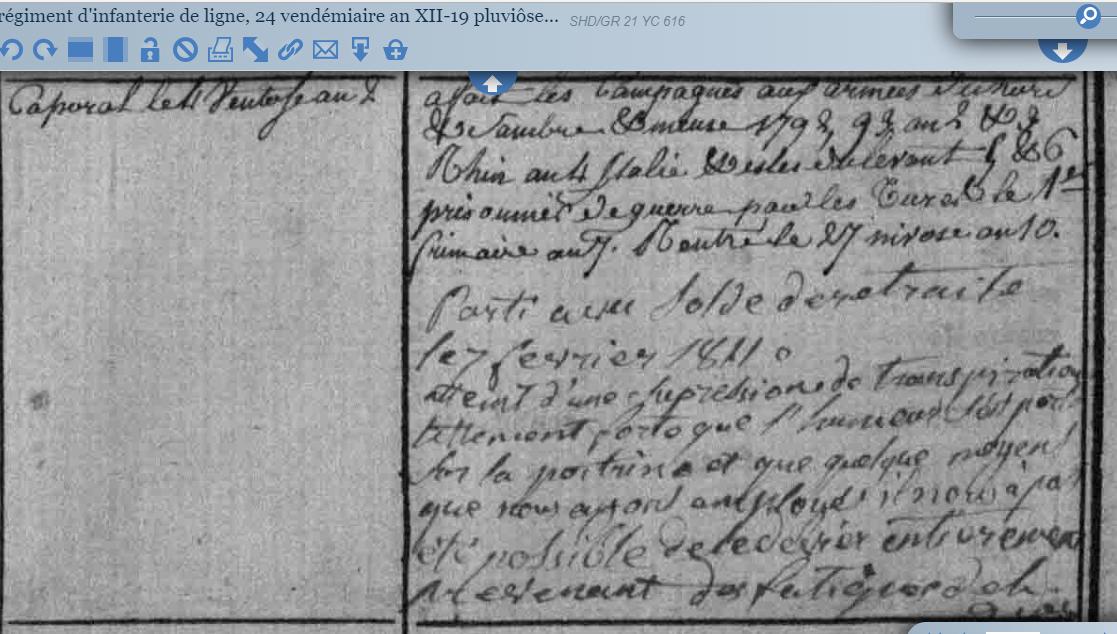 régiment d'infanterie de ligne, 24 vendémiaire an XII-19 pluviôse...
SHD/GR 21 YC 616
Caporal le 11 Ventose an 2
a fait les Campagnes aux armées du nord
& Sambre & meuse 1792, 93, an 2 & 3
Rhin an 4 Italie & isles du levant 5 & 6
prisonnier de guerre par les Turcs le 1er
frimaire an 7. Rentré le 27 nivose an 10.
Parti avec Solde de retraite
le 7 fevrier 1811
atteint d'une supression de transpiration
tellement forte que l'humeur s'est port
sur la poitrine et que quelque moyens
que nous ayons employé il nous à pas
été possible de entierement
provenant des fatigues de la